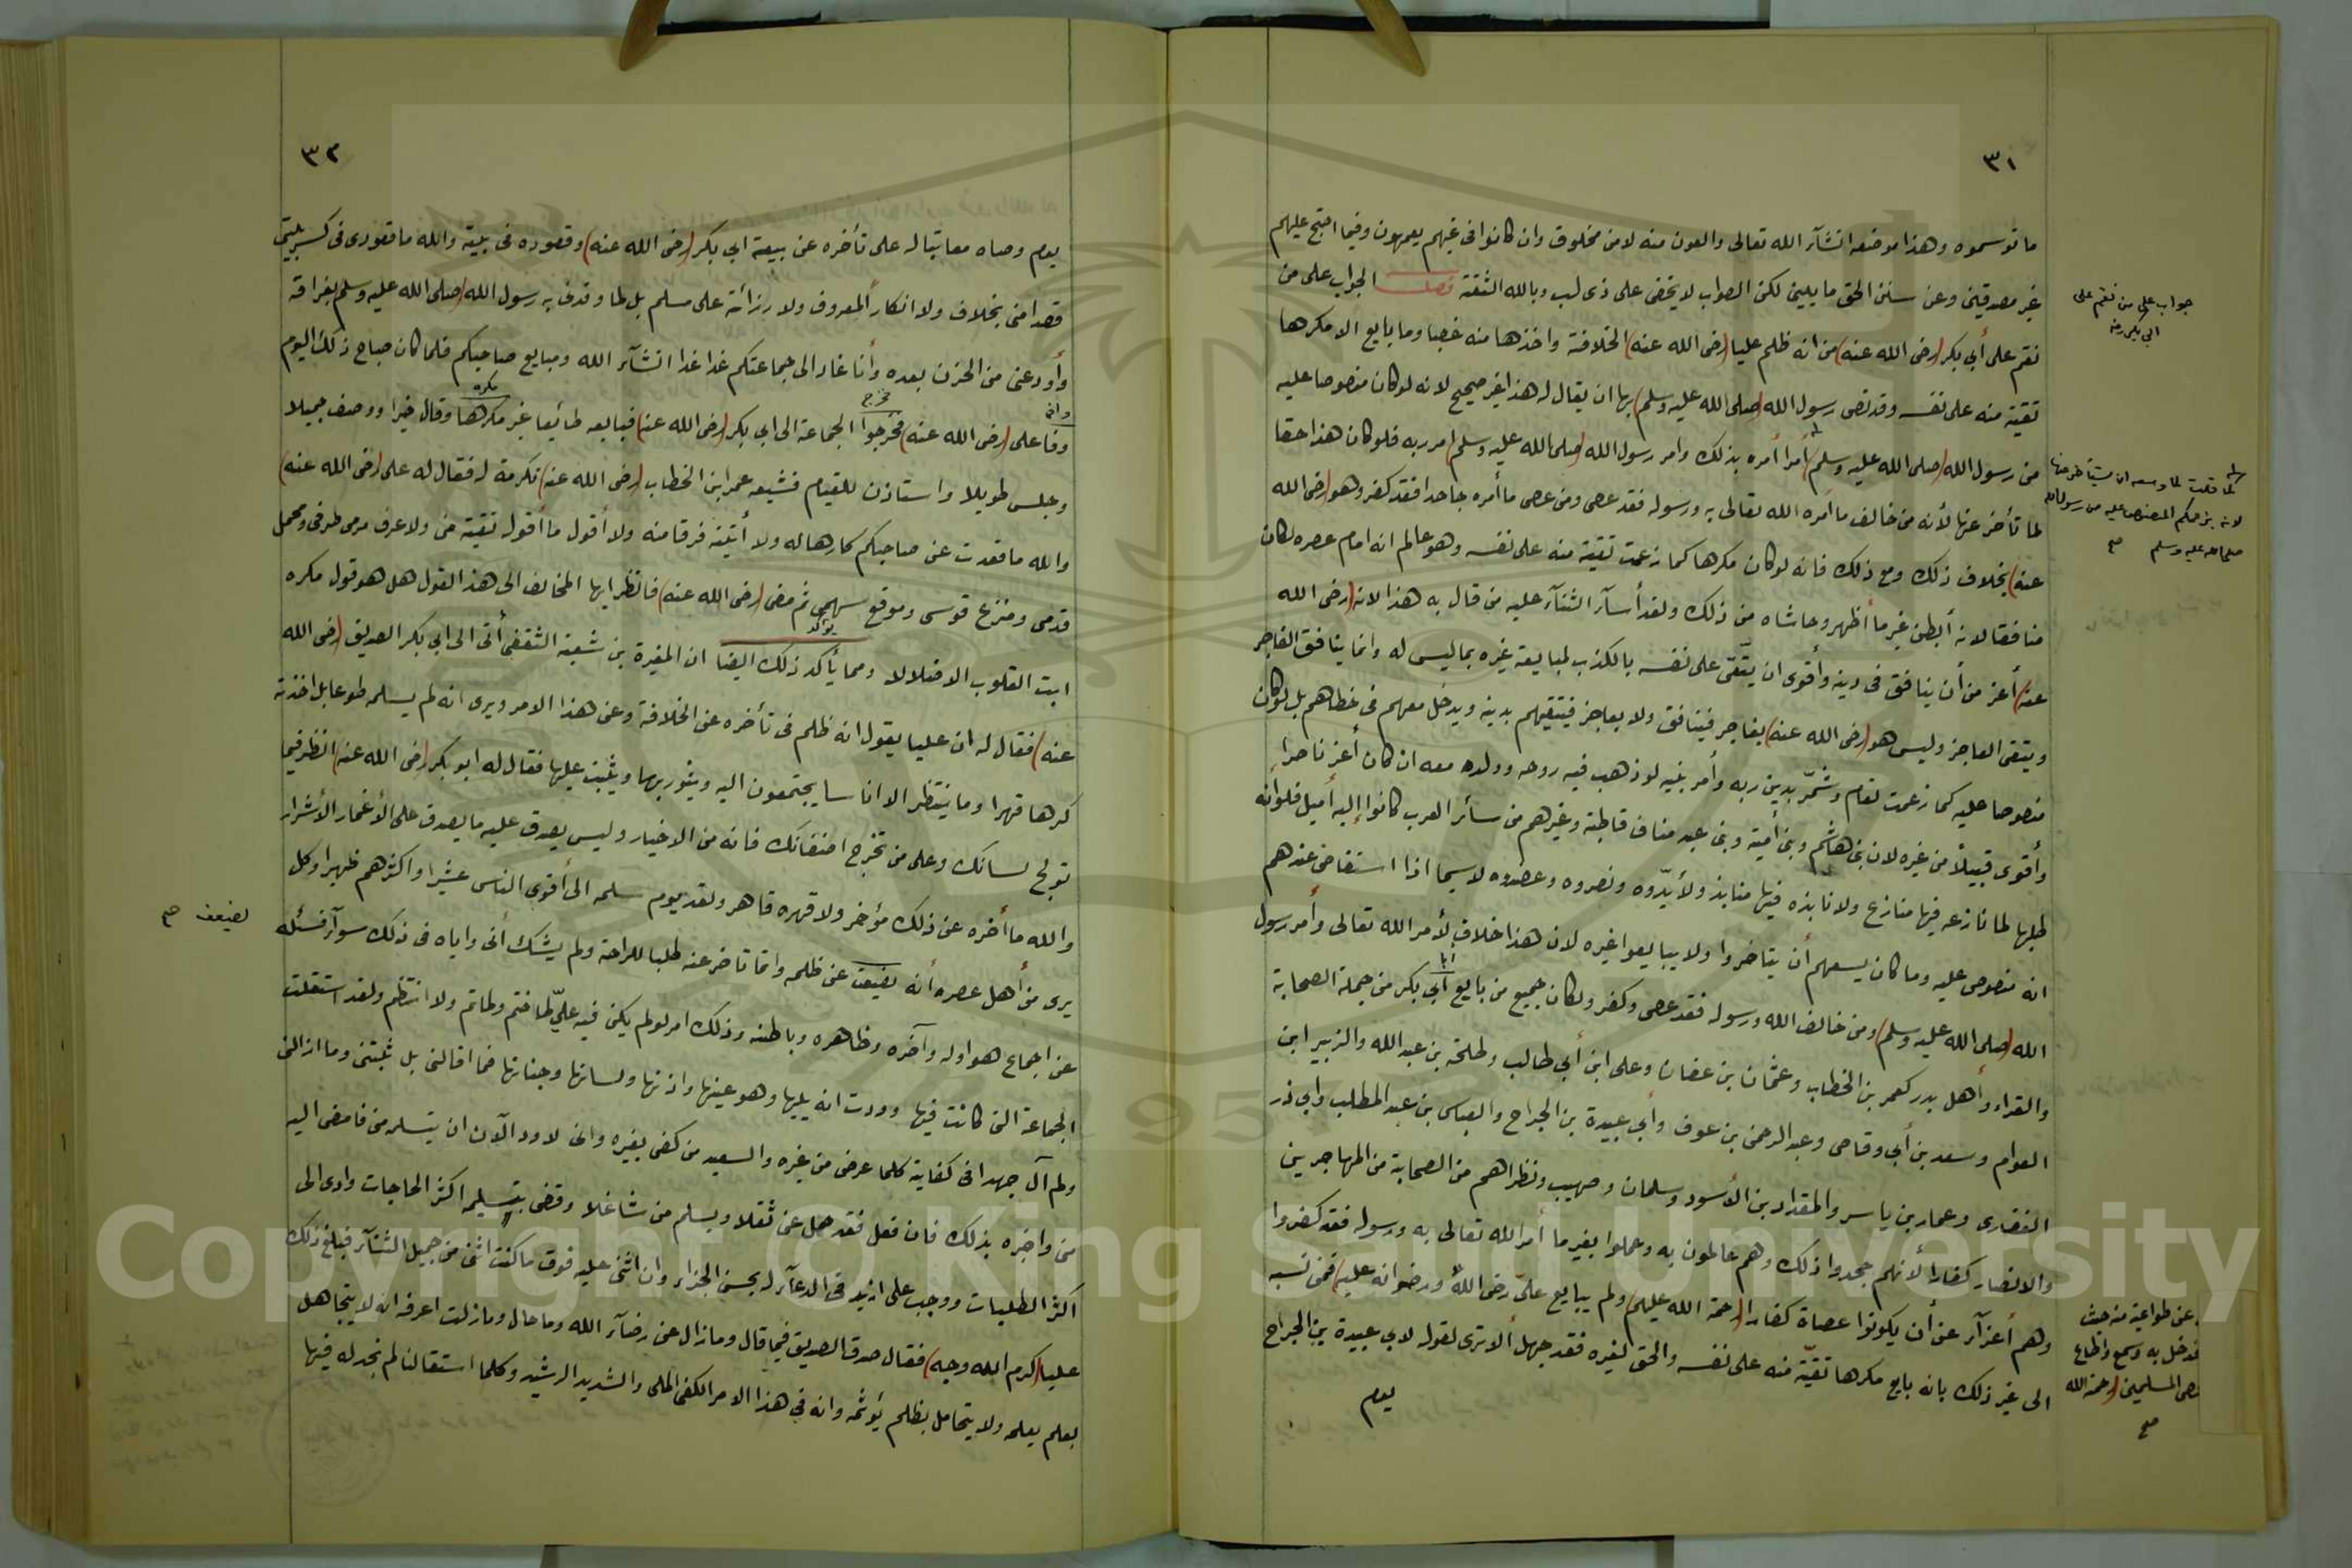 ٣١
ما توسموه وهذا موضعه انشآء الله تعالى والعون منه لا من مخلوق وان كانوا فى غيهم يعمهون وفيما احتج عليهم
غير مصدقين وعن سنن الحق مايلين لكن الصواب لا يخفى على ذى لب وبالله الثقة فصل الجواب على من
نقم على أبى بكر (رضى الله عنه) من انه ظلم عليا (رضى الله عنه) الخلافة واخذها منه غصبا وما بايع الا مكرها
تقية منه على نفسه وقد نص رسول الله (صلى الله عليه وسلم) بها ان يقال له هذا غير صحيح لانه لو كان منصوصا عليه
من رسول الله (صلى الله عليه وسلم) أمرا أمره بذلك وامر رسول الله (صلى الله عليه وسلم) امر ربه فلو كان هذا حقا
لما تأخر عنها لأنه من خالف ما امره الله تعالى به ورسوله فقد عصى ومن عصى ما أمره جاحدا فقد كفر وهو (رضى الله
عنه) بخلاف ذلك ومع ذلك فانه لو كان مكرها كما زعمت تقية منه على نفسه وهو عالم انه امام عصره لكان
منافقا لانه أبطن غير ما أظهر وحاشاه من ذلك ولقد أسآء الثنآء عليه من قال به هذا لانه (رضى الله
عنه) أعز من أن ينافق فى دينه وأقوى ان يتّقى على نفسه بالكذب لمبايعة غيره بما ليس له وانما ينافق الفاجر
ويتقى العاجز وليس هو (رضى الله عنه) بفاجر فينافق ولا بعاجز فيتقيهم بدينه ويدخل معهم فى خطاهم بل لو كان
منصوصا عليه كما زعمت لقام وشمّر بدين ربه وأمر نبيه لو ذهب فيه روحه وولده معه ان كان أعز ناصرا
وأقوى قبيلا من غيره لان بنى هاشم وبنى أمية وبنى عبد مناف قاطبة وغيرهم من سائر العرب كانوا إليه أميل فلو أنه
طلبها لما نازعه فيها منازع ولا نابذه فيها منابذ ولأيدّوه ونصروه وعضدوه لاسيما اذا استفاض عندهم
انه منصوص عليه وما كان يسعهم أن يتاخروا ولا يبايعوا غيره لان هذا خلاف لأمر الله تعالى وأمر رسول
الله (صلى الله عليه وسلم) ومن خالف الله ورسوله فقد عصى وكفر ولكان جميع من بايع أبى بكر من جملة الصحابة
والقراء وأهل بدر كعمر بن الخطاب وعثمان بن عفان وعلى ابن أبي طالب وطلحة بن عبد الله والزبير ابن
العوام وسعد بن أبي وقاص وعبد الرحمن بن عوف وأبي عبيدة بن الجراح والعباس بن عبد المطلب وأبى ذر
الغفارى وعمار بن ياسر والمقداد بن الأسود وسلمان وصهيب ونظراهم من الصحابة من المهاجرين
والانصار كفارا لأنهم جحدوا ذلك وهم عالمون به وعملوا بغير ما أمر الله تعالى به ورسوله فقد كفروا
وهم أعزآء عن أن يكونوا عصاة كفارا (رحمة الله عليهم) ولم يبايع علىّ رضى الله ورضوانه عليه) فمن نسبه
الى غير ذلك بانه بايع مكرها تقيّة منه على نفسه والحق لغيره فقد جهل ألا ترى لقوله لابى عبيدة بن الجراح
يوم
جواب على من نقم على
ابى بكر رضه
لما قلت لما وسعه ان يتأخر عنها
لانه بزعمكم المنصوص عليه من رسول الله
صلى الله عليه وسلم صح
عن طواعية منه حيث
فدخل به وسمع واطاع
المسلمين (رحمة الله
صح
٣٢
يوم وصاه معاتبا له على تأخره عن بيعة ابى بكر (رضى الله عنه) وقعوده فى بيته والله ما قعودى فى كسر بيتى
قصدا منى بخلاف ولا انكار المعروف ولا رزائة على مسلم بل لما وقذنى به رسول الله (صلى الله عليه وسلم) بفراقه
وأودعنى من الحزن بعده وأنا غاد الى جماعتكم غدا غدا انشآء الله ومبايع صاحبكم فلما كان صباح ذلك اليوم
وفا على (رضى الله عنه) فخرجوا الجماعة الى ابى بكر (رضى الله عنه) فبايعه طائعا غير مكرها وقال خيرا ووصف جميلا
وجلس طويلا واستاذن للقيام فشيعه عمر ابن الخطاب (رضى الله عنه) تكرمة له فقال له على (رضى الله عنه)
والله ما قعدت عن صاحبكم كارها له ولا أتيته فرقا منه ولا أقول ما أقوله تقية منى ولا عرف مرمى طرفى ومحمل
قدمى ومنزع قوسى وموقع سهمى ثم مضى (رضى الله عنه) فانظر ايها المخالف الى هذا القول هل هو قول مكره
ابت القلوب الا ضلالا ومما يأكد ذلك ايضا ان المغيرة بن شعبة الثقفى أتى الى ابى بكر الصديق (رضى الله
عنه) فقال له ان عليا يقول انه ظلم فى تأخره عن الخلافة وعن هذا الامر ويرى انه لم يسلمه طوعا بل اخذته
كرها قهرا وما ينتظر الا اناسا يجتمعون اليه ويثور بهم ويثبت عليها فقال له ابو بكر (رضى الله عنه) انظر فيما
تولج لسانك وعلى من تخرج اضغانك فانه من الاخيار وليس يصدق عليه ما يصدق على الأغمار الأشرار
والله ما أخره عن ذلك مؤخر ولا قهره قاهر ولقد يوم سلمه الى أقوى الناس عشيرا واكثرهم ظهيرا وكل
يرى من أهل عصره أنه يضيف عن ظلمه وانما تاخر عنه طلبا للراحة ولم يشك أنى واياه فى ذلك سوآء فسئله
عن اجماع هو اوله وآخره وظاهره وباطنه وذلك امر لو لم يكن فيه علىّ لما ختم ولما تم ولا انتظم ولقد استقلت
الجماعة التى كانت فيها وودت انه يليها وهو عينها واذنها ولسانها وجنانها فما اقالنى بل ثبتنى وما ازالنى
ولم آل جهدا فى كفاية كلما عرض من غيره والسعيد من كفى بغيره وانى لاود الآن ان يتسلمه منى فامضى اليه
منى واخبره بذلك فان فعل فقد حمل عنى ثقلا ويسلم من شاغلا وقضى بتسليمه اكثر الحاجات وادى الى
اكثر الطلبات ووجب على ازيد فى الدعآء له بحسن الجزاء وان اثنى عليه فوق ما كنت اثنى من جميل الثنآء فبلغ ذلك
عليا (كرم الله وجه) فقال صدق الصديق فيما قال وما زال عن رضآء الله وما حال وما زلت اعرفه انه لا يتجاهل
بعلم يعلمه ولا يتحامل بظلم يؤثمه وانه فى هذا الامر الكفى الملى والشديد الرشيد وكلما استقالنا لم نجد له فيها
وافى
فخرج
مكره
يؤكد
يضعف صح
Copyright © King Saud University